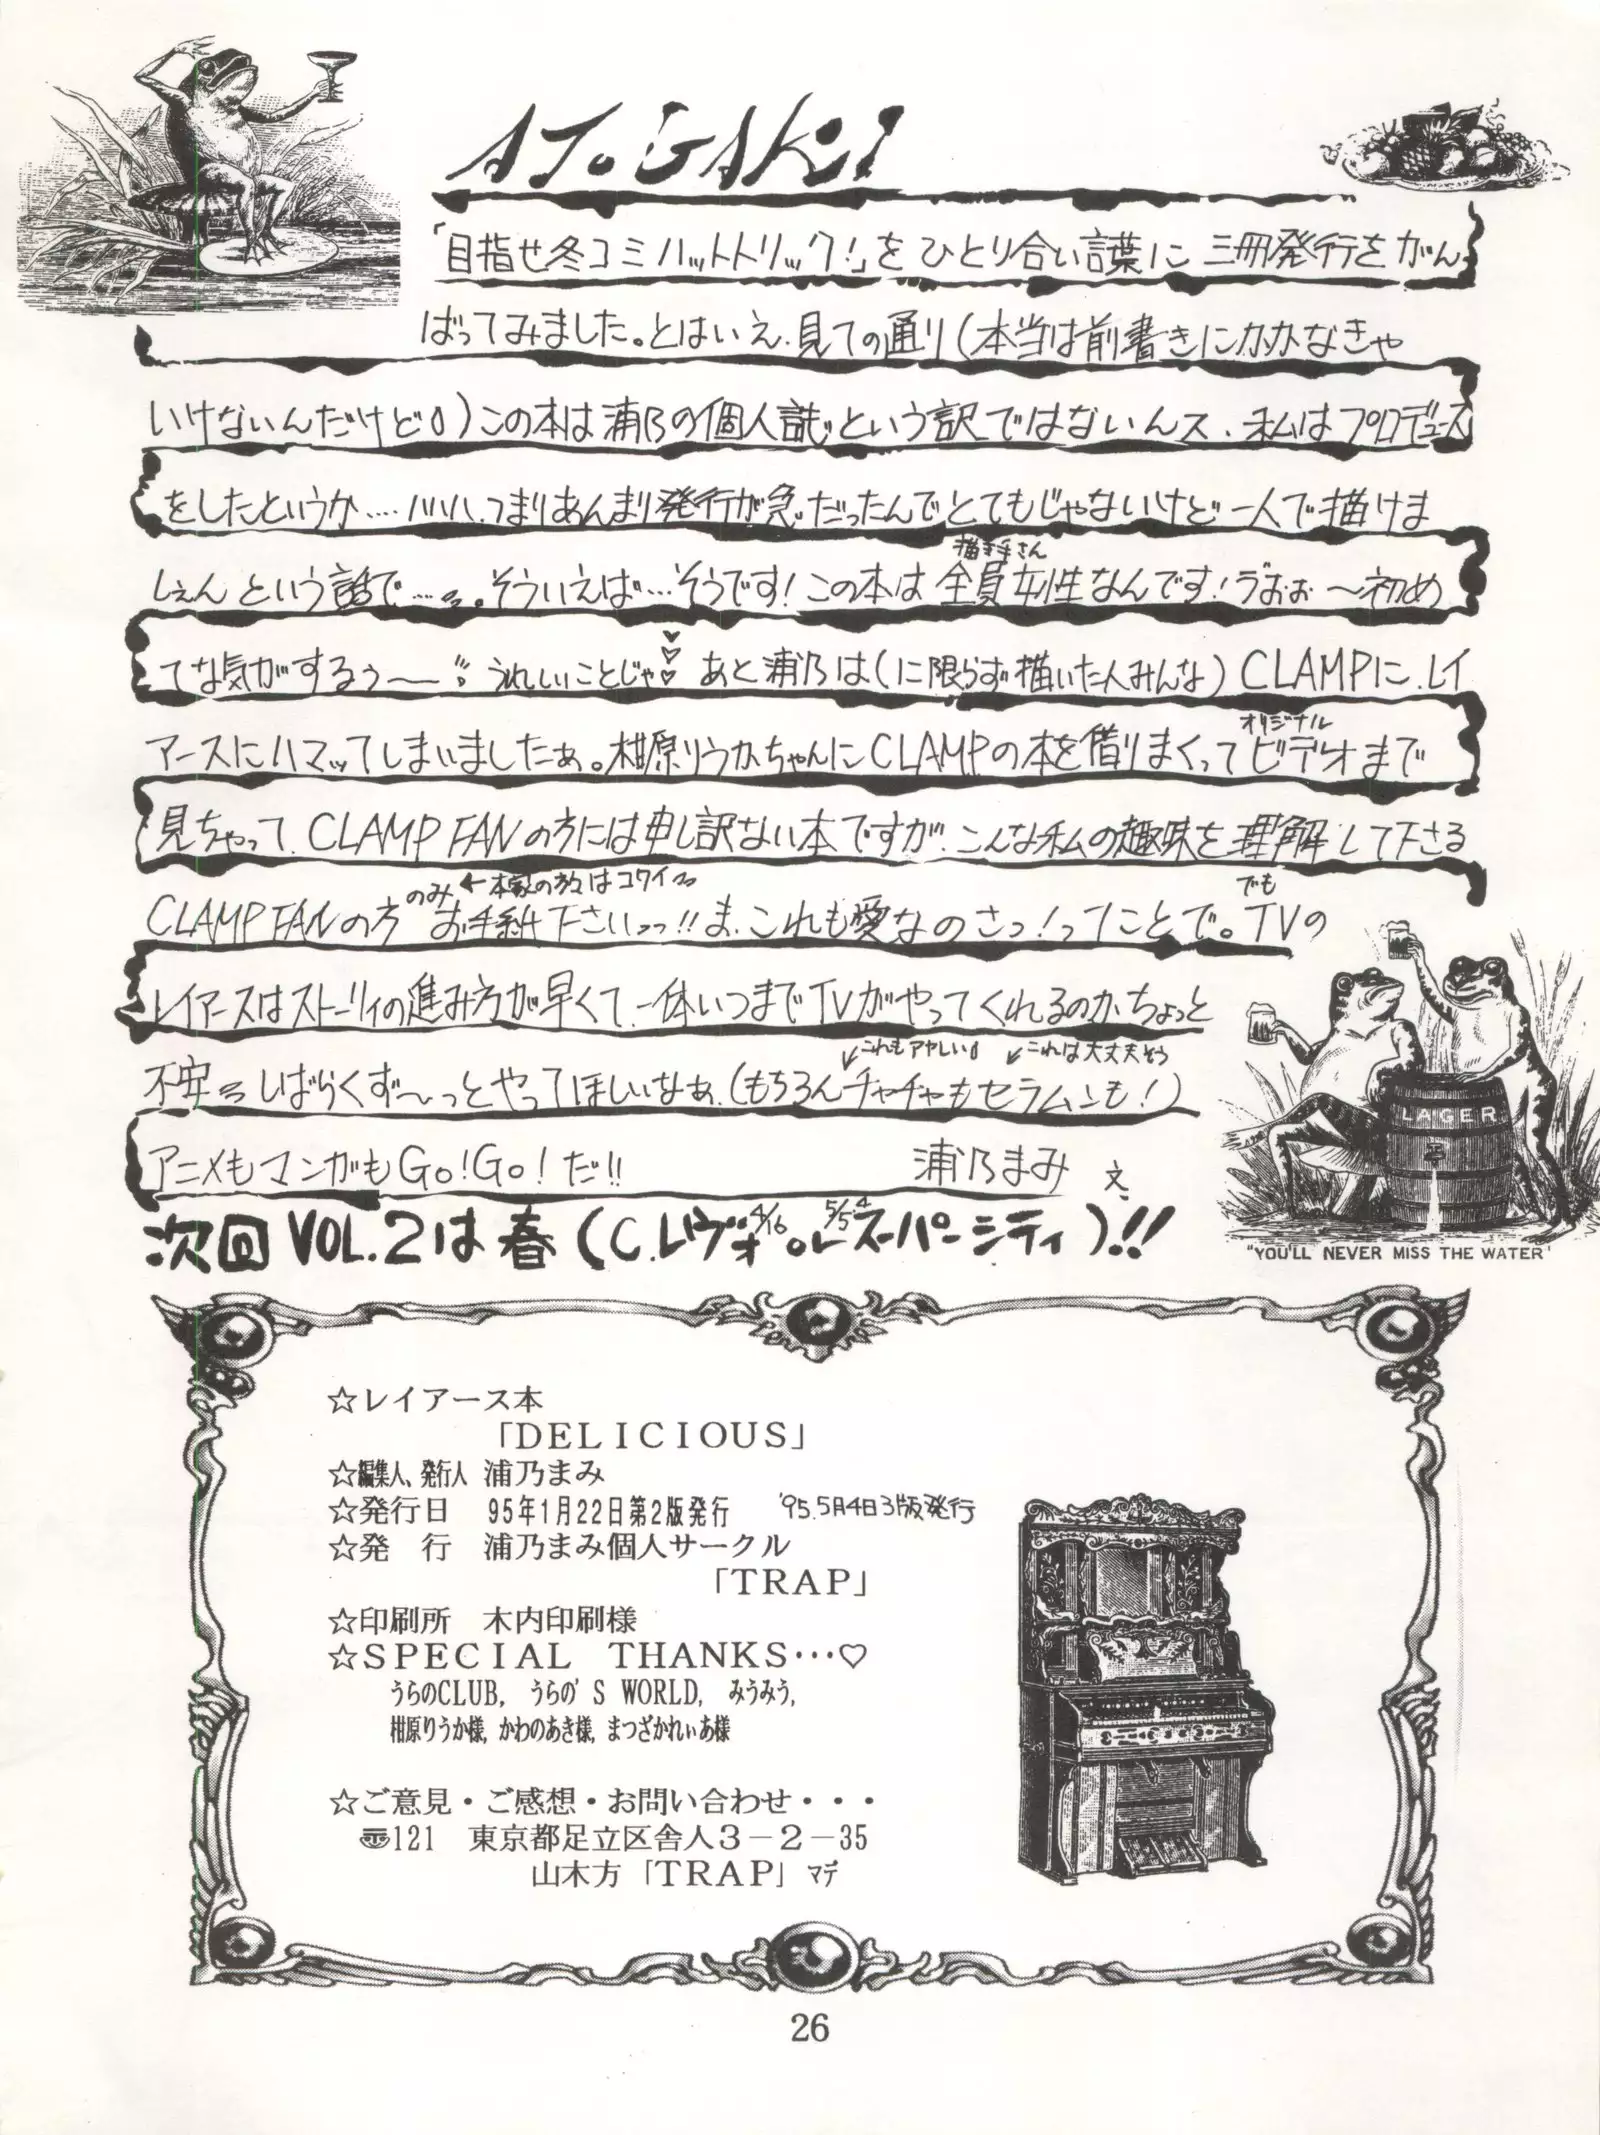 ATOGAKI
「目指せ冬コミハットトリック!」をひとり合い言葉に三冊発行をがん
ばってみました。とはいえ、見ての通り(本当は前書きにかかなきゃ
いけないんだけど)この本は浦乃の個人誌という訳ではないんス、私はプロデュース
をしたというか…ハハハ、つまりあんまり発行が急だったんでとてもじゃないけど一人で描けま
しぇんという話で…。そういえば…そうです!この本は全員女性なんです!うおぉ〜初め
描き手さん
てな気がするぅ〜 うれしいことじゃ♡♡ あと浦乃は(に限らず描いた人みんな)CLAMPに、レイ
アースにハマってしまいましたぁ。柑原りうかちゃんにCLAMPの本を借りまくってビデオまで
オリジナル
見ちゃって、CLAMP FANの方には申し訳ない本ですが、こんな私の趣味を理解して下さる
CLAMP FANの方のみお手紙下さいっっ!!ま、これも愛なのさっ!ってことで。でもTVの
←本家の方はコワイ
レイアースはストーリィの進み方が早くて、一体いつまでTVがやってくれるのかちょっと
不安 しばらくず〜っとやってほしいなぁ、(もちろんチャチャもセラムンも!)
これもアヤしい
これは大丈夫そう
アニメもマンガもGo!Go!だ!! 浦乃まみ 文
次回VOL.2は春(C.レヴォ4/16 or 5/5 4スーパーシティ)!!
LAGER
"YOU'LL NEVER MISS THE WATER"
☆レイアース本
「DELICIOUS」
☆編集人、発行人 浦乃まみ
☆発行日 95年1月22日第2版発行 '95.5月4日3版発行
☆発 行 浦乃まみ個人サークル
「TRAP」
☆印刷所 木内印刷様
☆SPECIAL THANKS…♡
うらのCLUB, うらの'S WORLD, みうみう,
柑原りうか様, かわのあき様, まつざかれぃあ様
☆ご意見・ご感想・お問い合わせ・・・
〠121 東京都足立区舎人3−2−35
山木方「TRAP」マデ
26